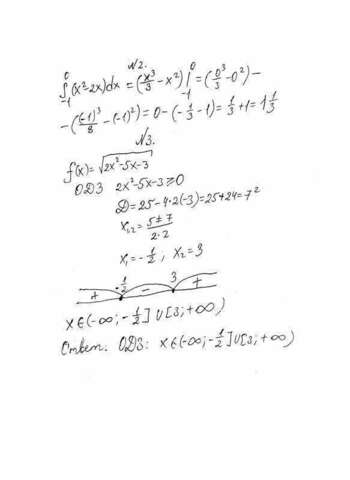 N2.
∫₋₁⁰ (x²-2x)dx = (x³/3 - x²)|₋₁⁰ = (0³/3 - 0²) -
- ((-1)³/3 - (-1)²) = 0 - (-1/3 - 1) = 1/3 + 1 = 1 1/3
N3.
f(x) = √(2x²-5x-3)
ОДЗ 2x²-5x-3≥0
D = 25 - 4·2(-3) = 25+24 = 7²
x₁,₂ = (5±7)/(2·2)
x₁ = -1/2 ; x₂ = 3
-1/2 3
+ - +
x∈(-∞; -1/2] ∪ [3; +∞)
Ответ: ОДЗ: x∈(-∞; -1/2] ∪ [3; +∞)